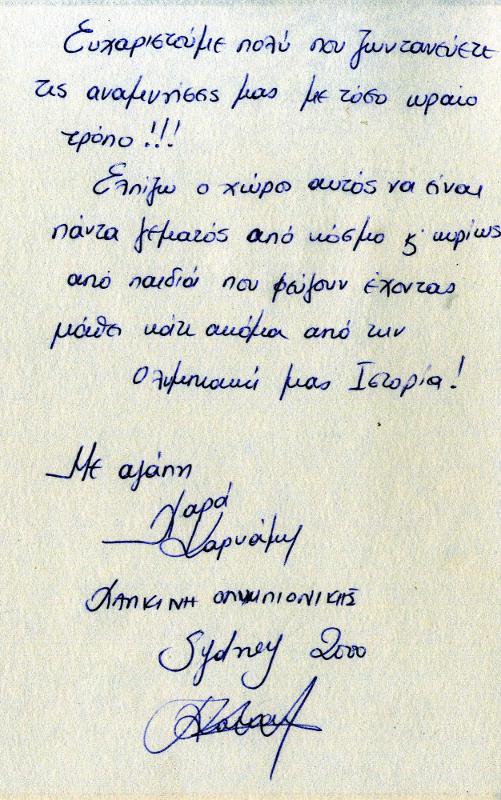 Ευχαριστούμε πολύ που ζωντανεύετε
τις αναμνήσεις μας με τόσο ωραίο
τρόπο!!!
Ελπίζω ο χώρος αυτός να είναι
πάντα γεματός από κόσμο κ' κυρίως
από παιδιά που φεύγουν έχοντας
μάθει κάτι ακόμα από την
Ολυμπιακή μας Ιστορία!
Με αγάπη
Χαρά
Καρυάμη
ΧΑΛΚΙΝΗ ΟΛΥΜΠΙΟΝΙΚΗΣ
Sydney 2000